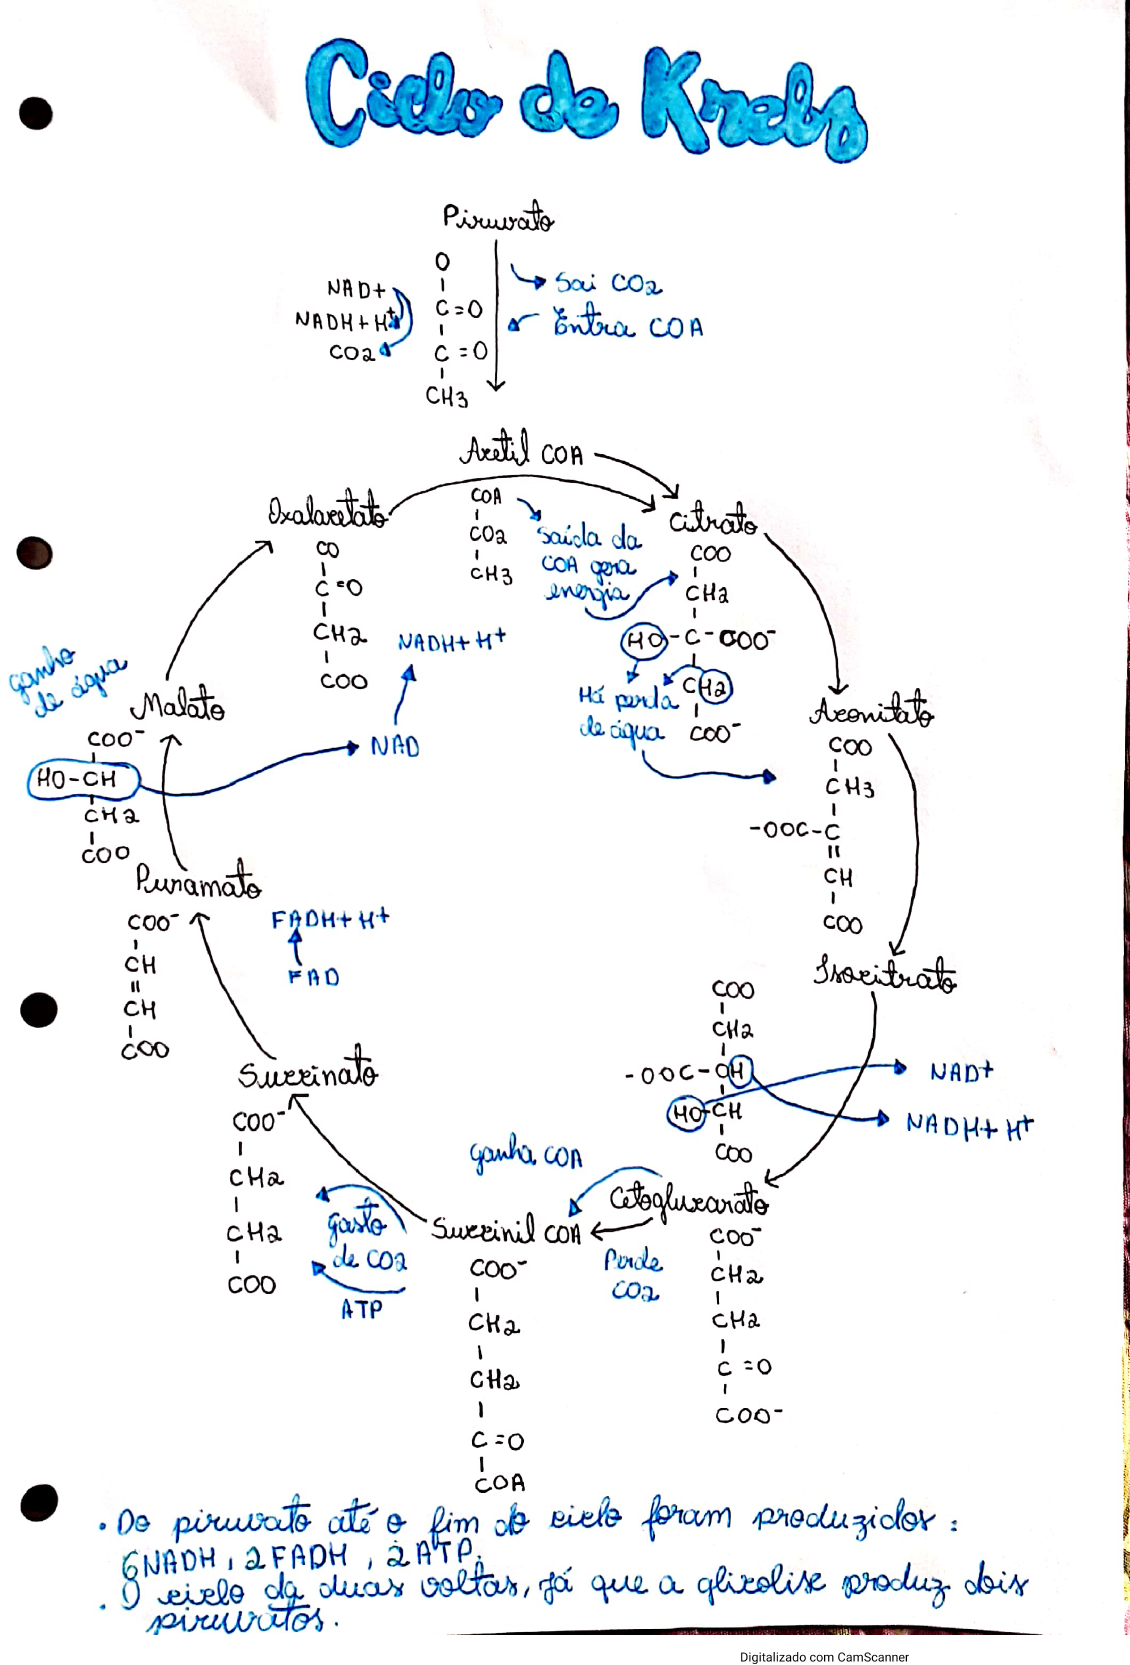 Ciclo de Krebs
Piruvato
O
C=O
C=O
CH3
NAD+
NADH+H+
CO2
Sai CO2
Entra COA
Acetil COA
COA
CO2
CH3
Saída da
COA gera
energia
Oxalacetato
CO
C=O
CH2
COO
Citrato
COO
CH2
HO-C-COO-
CH2
COO-
Há perda
de água
NADH+H+
NAD
ganho
de água
Malato
COO-
HO-CH
CH2
COO
Aconitato
COO
CH3
-OOC-C
CH
COO
Isocitrato
COO
CH2
-OOC-CH
HO-CH
COO
NAD+
NADH+H+
Fumarato
COO-
CH
CH
COO
FADH+H+
FAD
Succinato
COO-
CH2
CH2
COO
gasto
de CO2
ATP
ganha COA
Succinil COA
COO-
CH2
CH2
C=O
COA
Perde
CO2
Cetoglucarato
COO-
CH2
CH2
C=O
COO-
• Do piruvato até o fim do ciclo foram produzidos:
6NADH, 2FADH, 2ATP.
• O ciclo da duas voltas, já que a glicolise produz dois
piruvatos.
Digitalizado com CamScanner